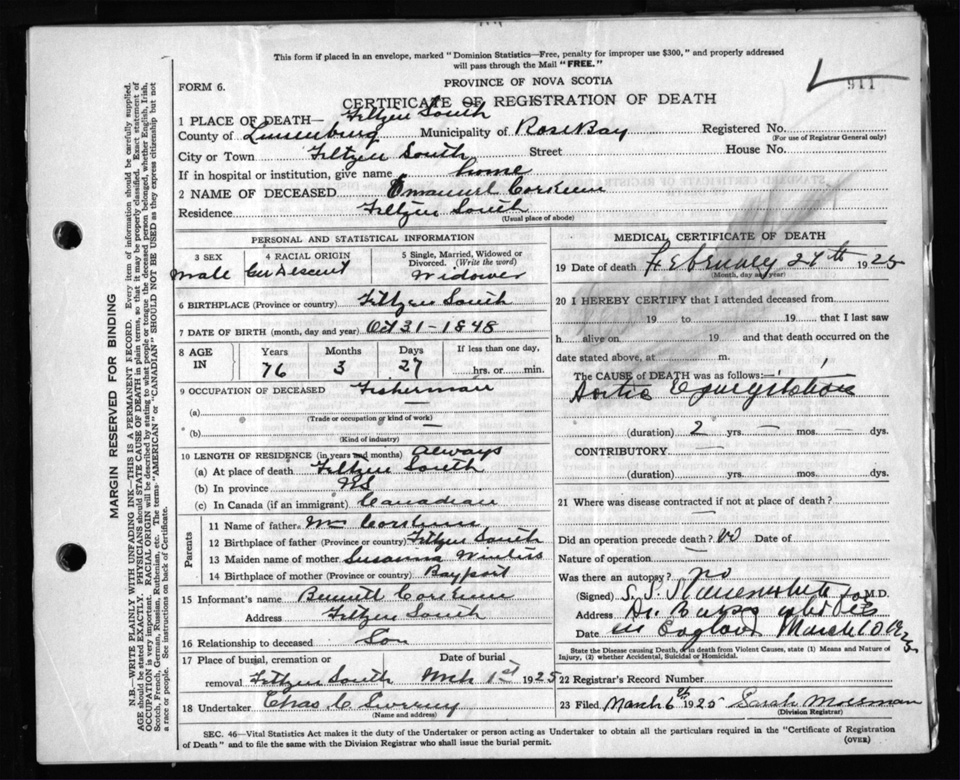 This form if placed in an envelope, marked "Dominion Statistics—Free, penalty for improper use $300," and properly addressed
will pass through the Mail "FREE."
911
PROVINCE OF NOVA SCOTIA
FORM 6.
CERTIFICATE OF REGISTRATION OF DEATH
1 PLACE OF DEATH— Feltzen South
County of Lunenburg Municipality of Rose Bay Registered No.
(For use of Registrar General only)
City or Town Feltzen South Street House No.
If in hospital or institution, give name home
2 NAME OF DECEASED Emanuel Corkum
Residence Feltzen South
(Usual place of abode)
PERSONAL AND STATISTICAL INFORMATION
3 SEX 4 RACIAL ORIGIN 5 Single, Married, Widowed or
Divorced. (Write the word)
Male Ger Descent Widower
6 BIRTHPLACE (Province or country) Feltzen South
7 DATE OF BIRTH (month, day and year) Oct 31-1848
8 AGE IN Years Months Days If less than one day,
76 3 27 hrs. or min.
9 OCCUPATION OF DECEASED Fisherman
(a)
(Trade or occupation or kind of work)
(b) —
(Kind of industry)
10 LENGTH OF RESIDENCE (in years and months) Always
(a) At place of death Feltzen South
(b) In province NS
(c) In Canada (if an immigrant) Canadian
Parents
11 Name of father Wm Corkum
12 Birthplace of father (Province or country) Feltzen South
13 Maiden name of mother Susanna
14 Birthplace of mother (Province or country) Bayport
15 Informant's name Corkum
Address Feltzen South
16 Relationship to deceased Son
17 Place of burial, cremation or Date of burial
removal Feltzen South Mch 1st 1925
18 Undertaker Chas C
(Name and address)
MEDICAL CERTIFICATE OF DEATH
19 Date of death February 27th 1925
(Month, day and year)
20 I HEREBY CERTIFY that I attended deceased from
19 to 19 that I last saw
h alive on 19 and that death occurred on the
date stated above, at m.
The CAUSE OF DEATH was as follows:—
Aortic
(duration) 2 yrs. — mos. — dys.
CONTRIBUTORY —
(duration) yrs. mos. dys.
21 Where was disease contracted if not at place of death?
—
Did an operation precede death? no Date of
Nature of operation —
Was there an autopsy? no
(Signed) S. S. for M.D.
Address Dr.
Date in England March 10 1925
State the Disease causing Death, or in death from Violent Causes, state (1) Means and Nature of
Injury, (2) whether Accidental, Suicidal or Homicidal.
22 Registrar's Record Number
23 Filed March 6th 1925 Sarah Mossman
(Division Registrar)
SEC. 46—Vital Statistics Act makes it the duty of the Undertaker or person acting as Undertaker to obtain all the particulars required in the "Certificate of Registration
of Death" and to file the same with the Division Registrar who shall issue the burial permit. (OVER)
MARGIN RESERVED FOR BINDING
N.B.—WRITE PLAINLY WITH UNFADING INK—THIS IS A PERMANENT RECORD. Every item of information should be carefully supplied.
AGE should be stated EXACTLY. PHYSICIANS should STATE CAUSE OF DEATH in plain terms, so that it may be properly classified. Exact statement of
OCCUPATION is very important. RACIAL ORIGIN will be described by stating to what people or tongue the deceased person belonged, whether English, Irish,
Scotch, French, German, Russian, Ruthenian, etc. The terms "AMERICAN" or "CANADIAN" SHOULD NOT BE USED as they express citizenship but not
a race or people. See instructions on back of Certificate.